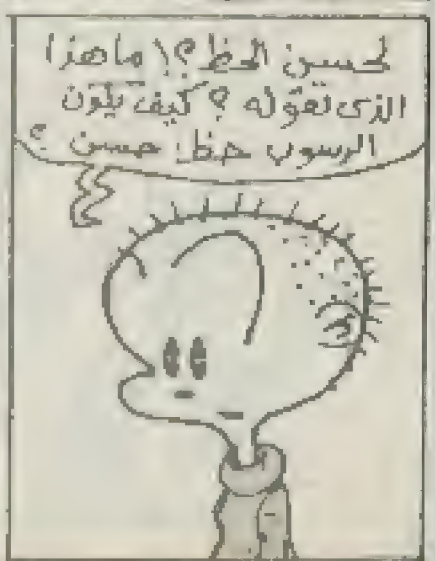 لحسن الحظ ؟! ما هذا
الذى تقوله ؟ كيف يكون
الرسوب حظا حسن ؟